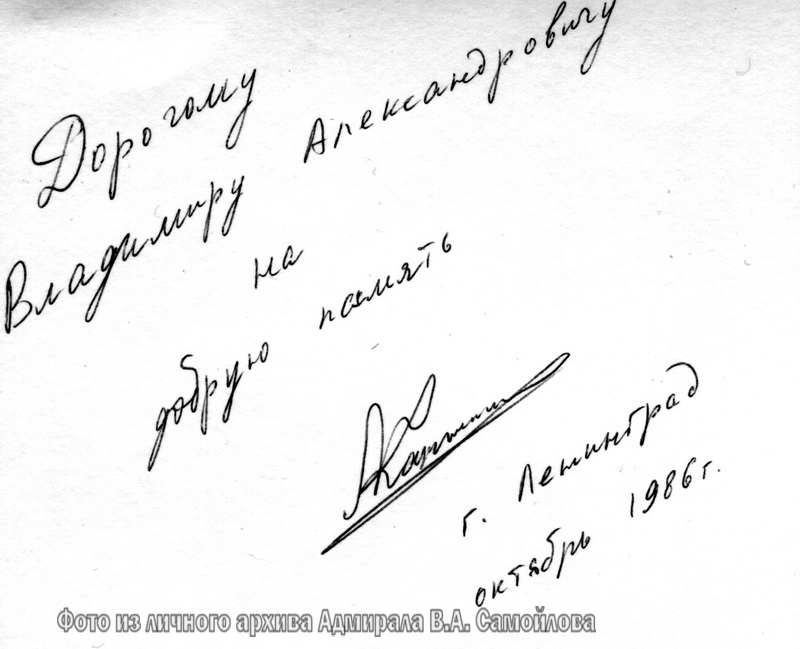 Дорогому
Владимиру Александровичу
на
добрую память
г. Ленинград
октябрь 1986 г.
Фото из личного архива Адмирала В.А. Самойлова